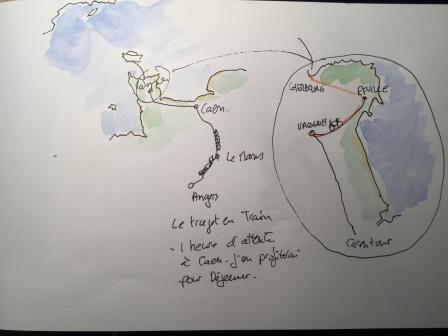 Caen
Le Mans
Angers
CHERBOURG
VALOGNES
Carentan
Le trajet en Train
- 1 heure d'attente
à Caen - j'en profiterai
pour Déjeuner.